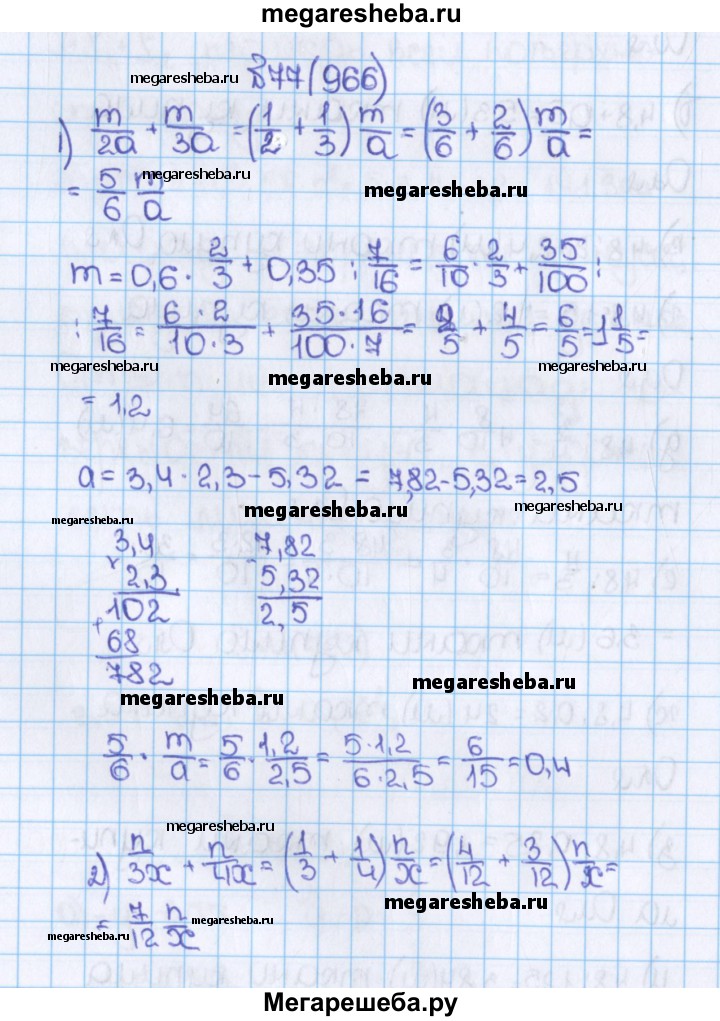 megaresheba.ru
megaresheba.ru 877(966)
1) m/2a + m/3a = (1/2 + 1/3) m/a = (3/6 + 2/6) m/a =
megaresheba.ru
= 5/6 m/a
megaresheba.ru
m = 0,6 · 2/3 + 0,35 : 7/16 = 6/10 · 2/3 + 35/100 :
: 7/16 = 6·2/10·3 + 35·16/100·7 = 2/5 + 4/5 = 6/5 = 1 1/5 =
megaresheba.ru megaresheba.ru megaresheba.ru
= 1,2
a = 3,4 · 2,3 - 5,32 = 7,82 - 5,32 = 2,5
megaresheba.ru megaresheba.ru megaresheba.ru
3,4 - 7,82
× 2,3 5,32
102 2,5
+ 68
782
megaresheba.ru megaresheba.ru
5/6 · m/a = 5/6 · 1,2/2,5 = 5·1,2/6·2,5 = 6/15 = 0,4
megaresheba.ru
2) n/3x + n/4x = (1/3 + 1/4) n/x = (4/12 + 3/12) n/x =
megaresheba.ru
= 7/12 n/x
megaresheba.ru megaresheba.ru
Мегарешеба.ру